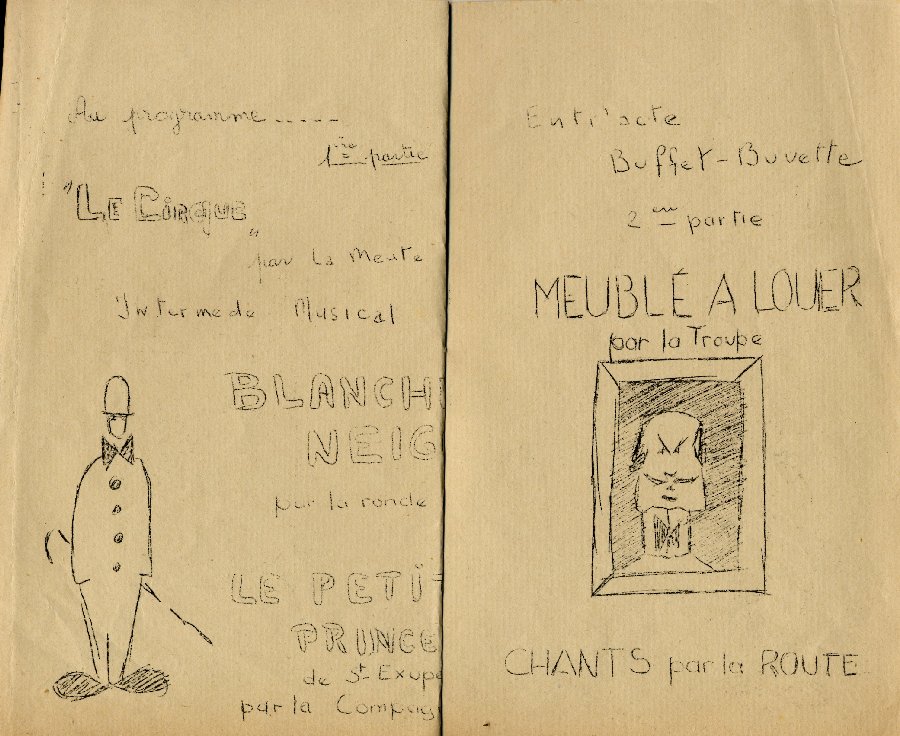 Au programme .....
1ère partie
"LE CIRQUE"
par La Meute
Intermede Musical
BLANCH
NEIG
par la ronde
LE PETIT
PRINCE
de St Exupé
par la Compag
Entr'acte
Buffet-Buvette
2 eme partie
MEUBLÉ A LOUER
par la Troupe
CHANTS par la ROUTE